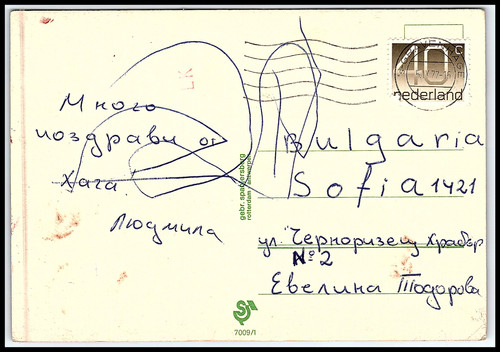 Много
поздрави от
Хага!
Людмила
gebr. spanjersberg
40 c
nederland
Bulgaria
Sofia 1421
ул. Черноризец Храбър
№ 2
Евелина Тодорова
7009/1